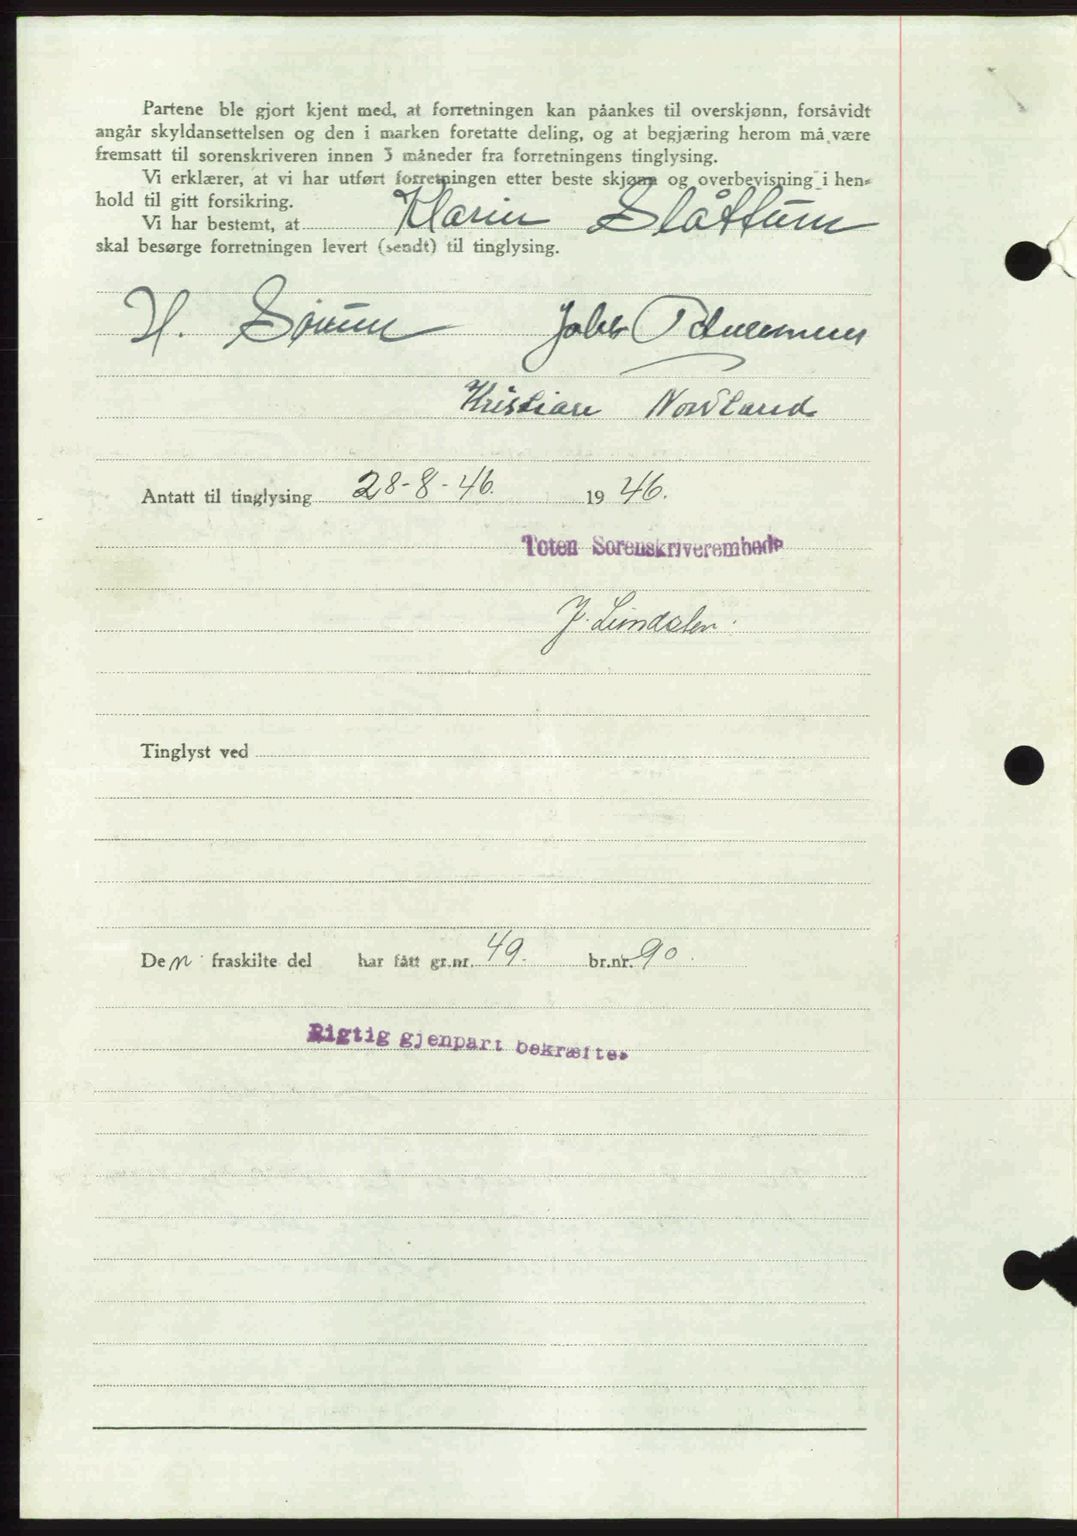 Partene ble gjort kjent med, at forretningen kan påankes til overskjønn, forsåvidt
angår skyldansettelsen og den i marken foretatte deling, og at begjæring herom må være
fremsatt til sorenskriveren innen 3 måneder fra forretningens tinglysing.
Vi erklærer, at vi har utført forretningen etter beste skjønn og overbevisning i hen-
hold til gitt forsikring.
Vi har bestemt, at Klarin Slåttum
skal besørge forretningen levert (sendt) til tinglysing.
H. Sørum
Kristian Nordland
Antatt til tinglysing 28-8-46. 19 46.
Toten Sorenskriverembede
J. Lundalen
Tinglyst ved
Den fraskilte del har fått gr.nr. 49. br.nr. 90.
Rigtig gjenpart bekræftes